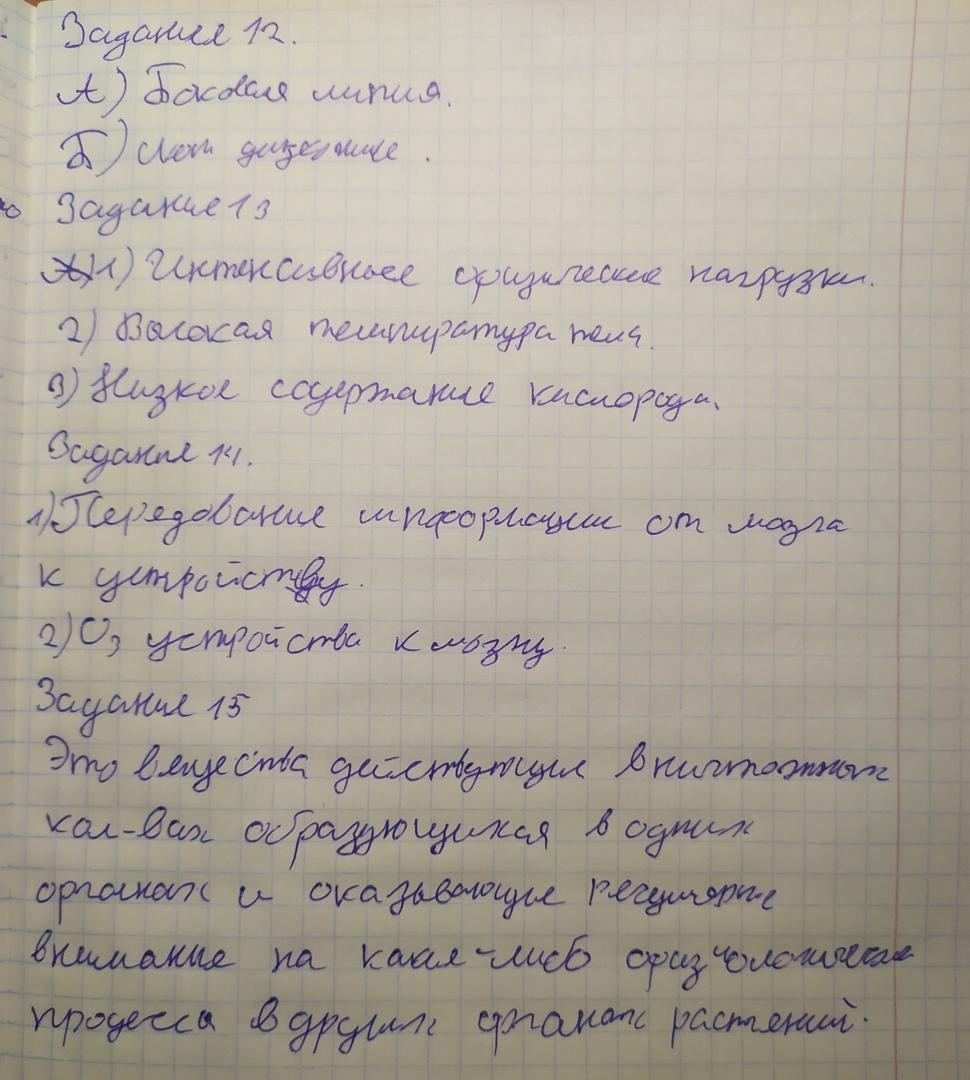 Задание 12.
А) Боковая линия.
Б)
Задание 13
1) Интенсивные физические нагрузки.
2) Высокая темпиратура тела.
3) Низкое содержание кислорода.
Задание 14.
1) Передование информации от мозга
к устройству.
2) Оз устройства к мозгу.
Задание 15
Это вещества действующие в ничтожных
кол-вах образующихся в одних
органах и оказывающие
внимание на какие-либо физиологические
процессы в других органах растений.